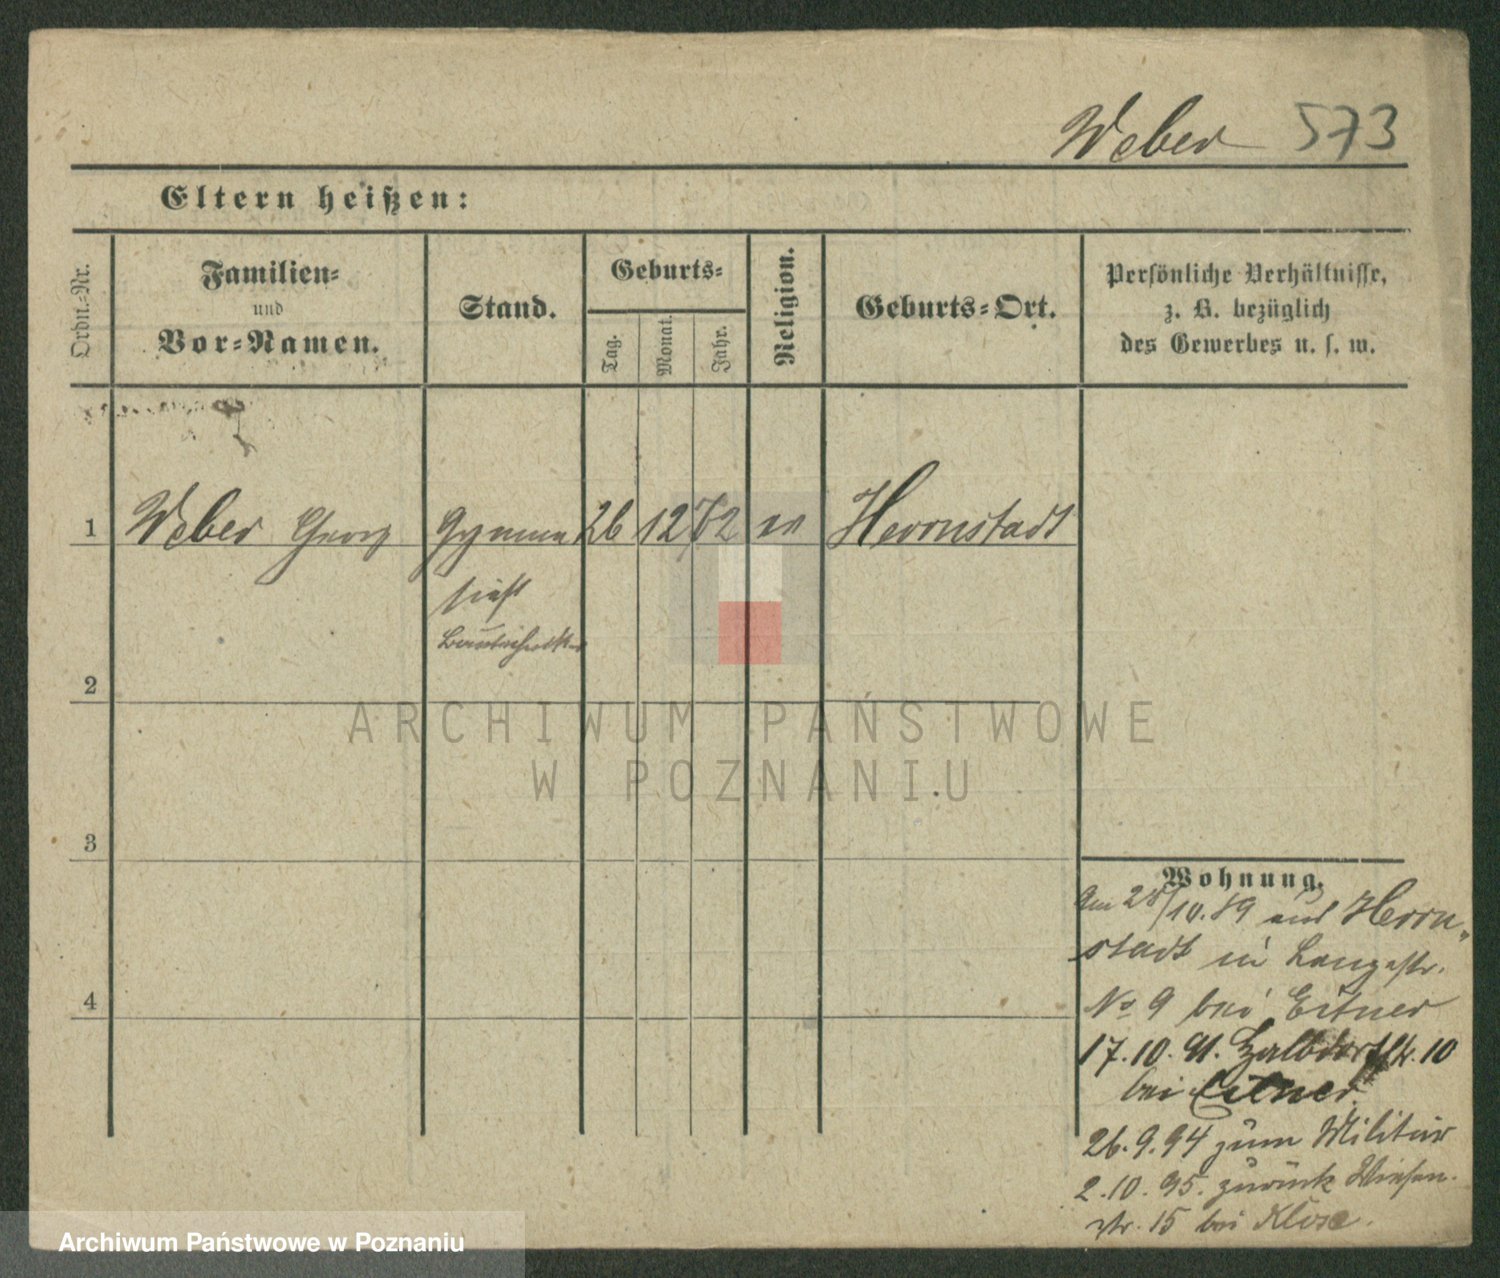 Weber 573
Eltern heißen:
Ordn.-Nr.
Familien-
und
Vor-Namen.
Stand.
Geburts-
Tag.
Monat.
Jahr.
Religion.
Geburts-Ort.
Persönliche Verhältnisse,
z. B. bezüglich
des Gewerbes u. s. w.
1 Weber Georg Gymna 26 12 72 ev Herrnstadt
siast
Bautechniker
2
3
4
ARCHIWUM PAŃSTWOWE
W POZNANIU
Wohnung.
Am 28/10.89 aus Herrn-
stadt in Langestr.
No 9 bei Eitner
17.10.91. Halbdorfstr. 10
bei Eitner.
26.9.94 zum Militär
2.10.95. zurück Wiesen-
str. 15 bei Klose.
Archiwum Państwowe w Poznaniu